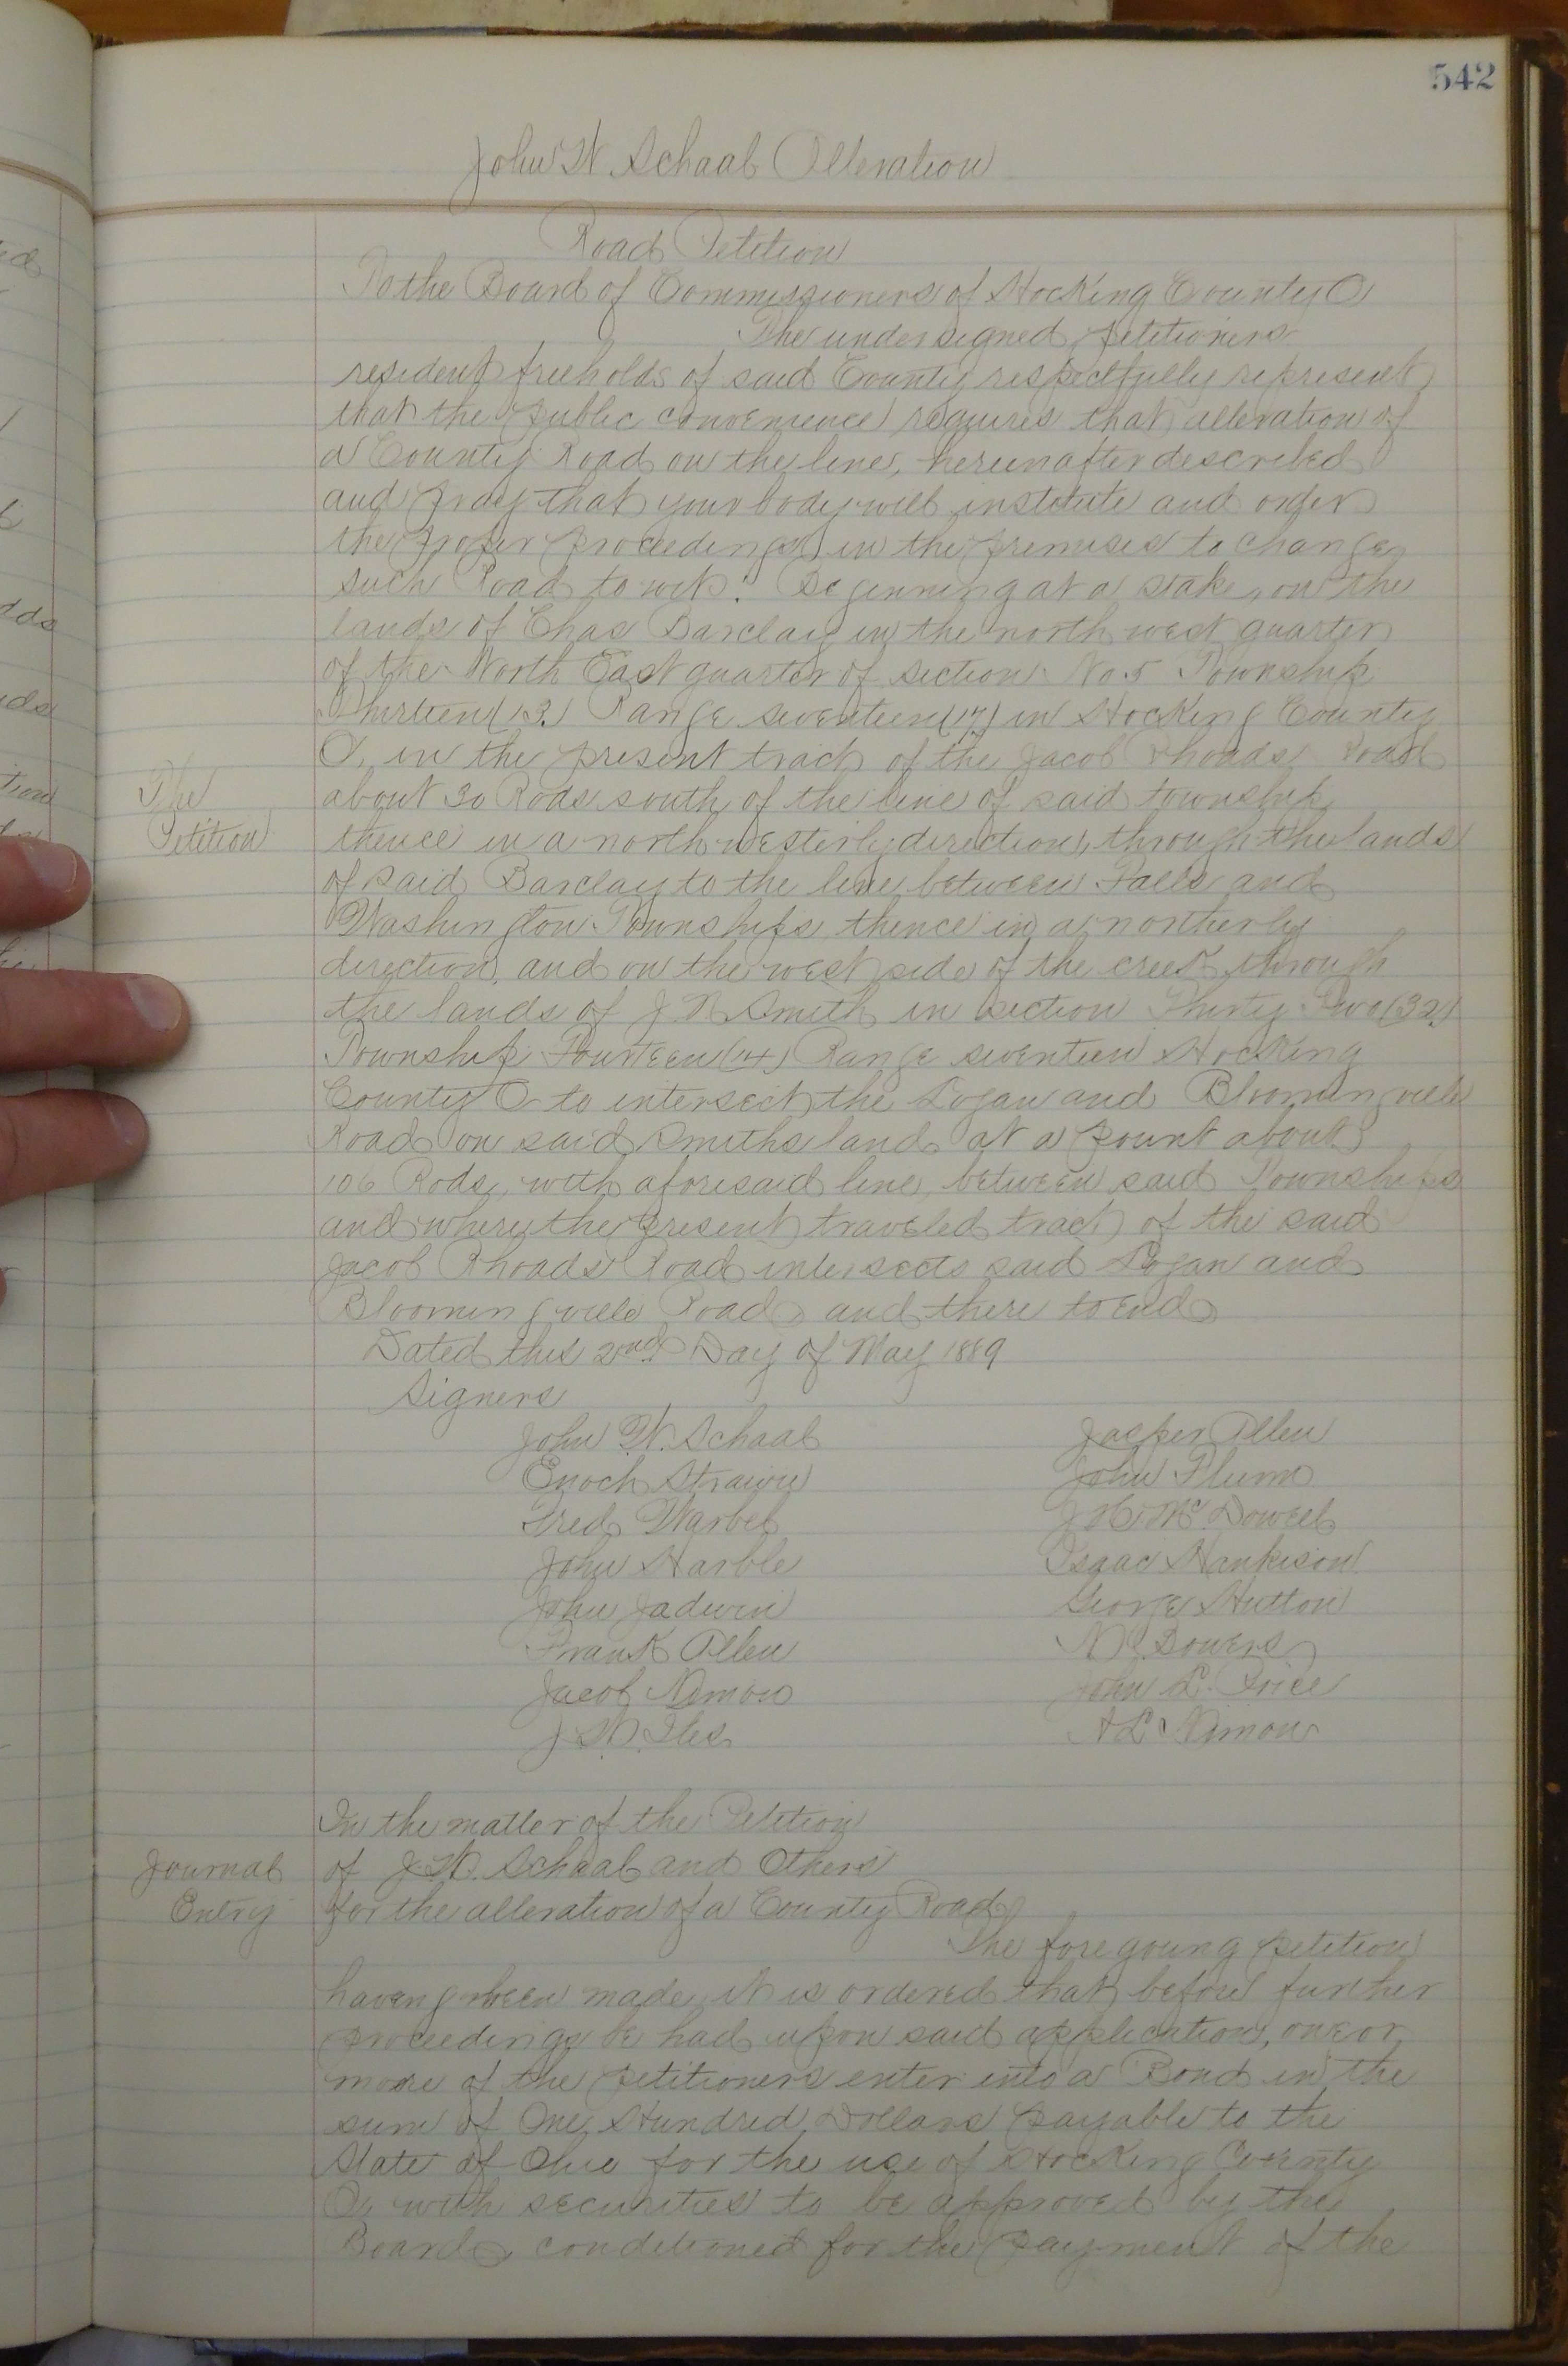 542
John W. Schaal Alteration
Road Petition
To the Board of Commissioners of Hocking County O
The undersigned petitioners
resident freeholds of said County respectfully represent
that the public convenience requires that alteration of
a County Road on the line, hereinafter described
and pray that your body will institute and order
the proper proceedings in the premises to change
such Road to wit: Beginning at a stake, on the
lands of Chas Barclay in the north west quarter
of the North East quarter of section No. 5 Township
Thirteen (13.) Range seventeen (17.) in Hocking County
O. in the present tract of the Jacob Rhoads Road
about 30 Rods south of the line of said township
The
Petition
thence in a north westerly direction, through the lands
of said Barclay to the line between Falls and
Washington Townships thence in a northerly
direction, and on the west side of the creek through
the lands of J W Smith in section Thirty Two (32.)
Township Fourteen (14) Range seventeen Hocking
County O to intersect the Logan and Bloomingville
Road on said Smiths land at a point about
106 Rods, with aforesaid line, between said Townships
and where the present traveled tract of the said
Jacob Rhoads Road intersects said Logan and
Bloomingville Road and there to end
Dated this 2nd Day of May 1889
Signers
John W. Schaal Jasper Allen
Enoch Strawn John Plumm
Fred Warbel J H. Mc Dowell
John Harble Isaac Hankison
John Jadwin George Hutton
Frank Allen Bowers
Jacob Nimon John L. Price
J W. Iles A L Nimon
In the matter of the Petition
Journal
Entry
of J. W. Schaal and Others
for the alteration of a County Road
The foregoing petition
having been made it is ordered that before further
proceedings be had upon said application, one or
more of the petitioners enter into a Bond in the
sum of One Hundred Dollars payable to the
State of Ohio for the use of Hocking County
O, with securities to be approved by the
Board, conditioned for the payment of the